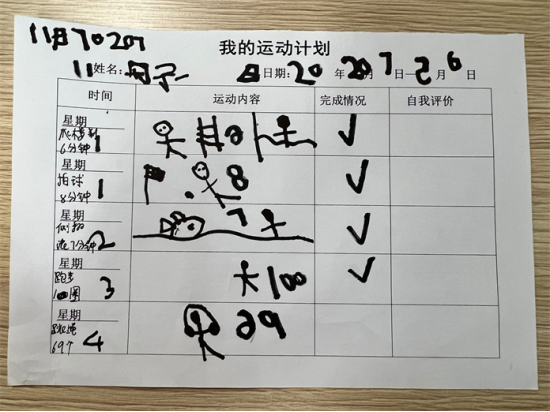 11月70207
我的运动计划
11 姓名:
日期: 20 年 20 月 7 日—2 月 6 日
时间 运动内容 完成情况 自我评价
星期 1
6分钟
✓
星期 1
拍球 8 ✓
8分钟
星期 2
7分钟 7 ✓
星期 3
跑步 100 ✓
100圈
星期 4
跳绳 29
69个